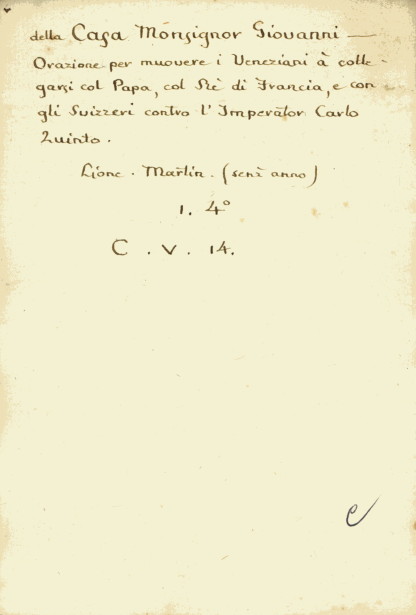 della Casa Monsignor Giovanni —
Orazione per muovere i Veneziani à colle-
garsi col Papa, col Rè di Francia, e con
gli Suizzeri contro l'Imperator Carlo
Quinto.
Lione. Martin. (senz anno)
1. 4°
C. V. 14.
e